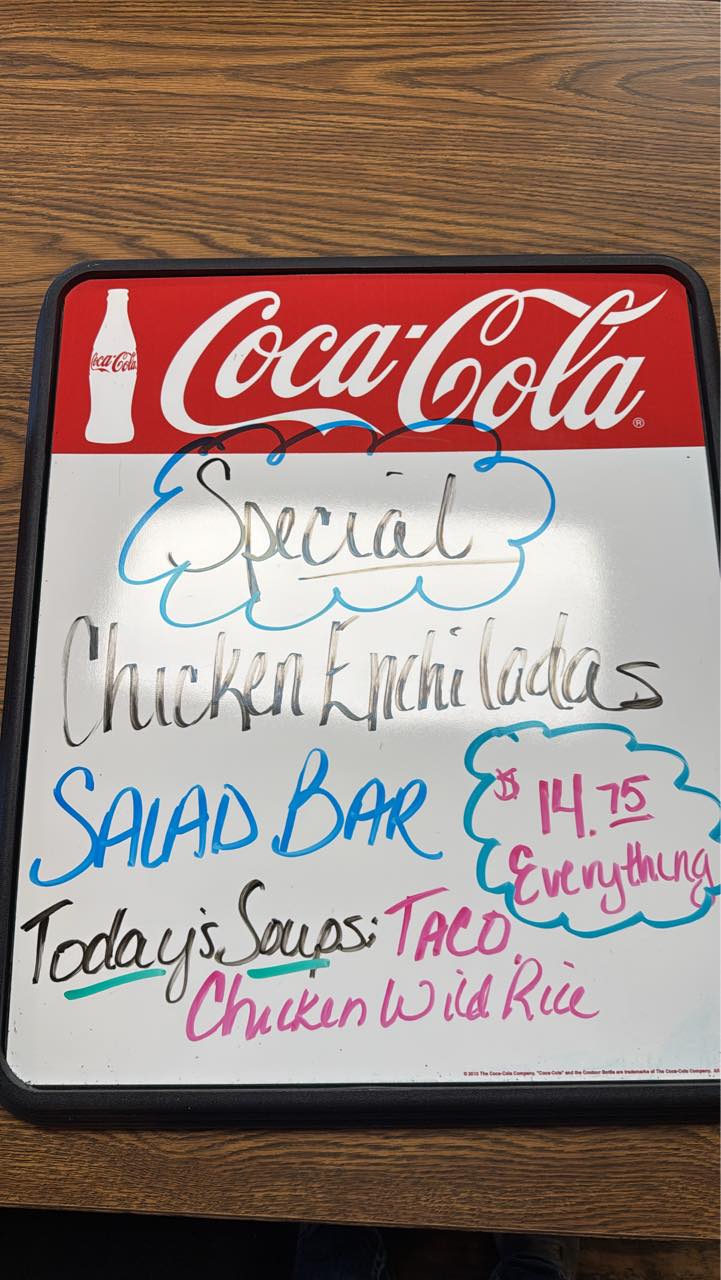 Coca-Cola
Coca-Cola®
Special
Chicken Enchiladas
SALAD BAR
$14.75
Everything
Today's Soups: TACO
Chicken Wild Rice
© 2015 The Coca-Cola Company. "Coca-Cola" and the Contour Bottle are trademarks of The Coca-Cola Company. All